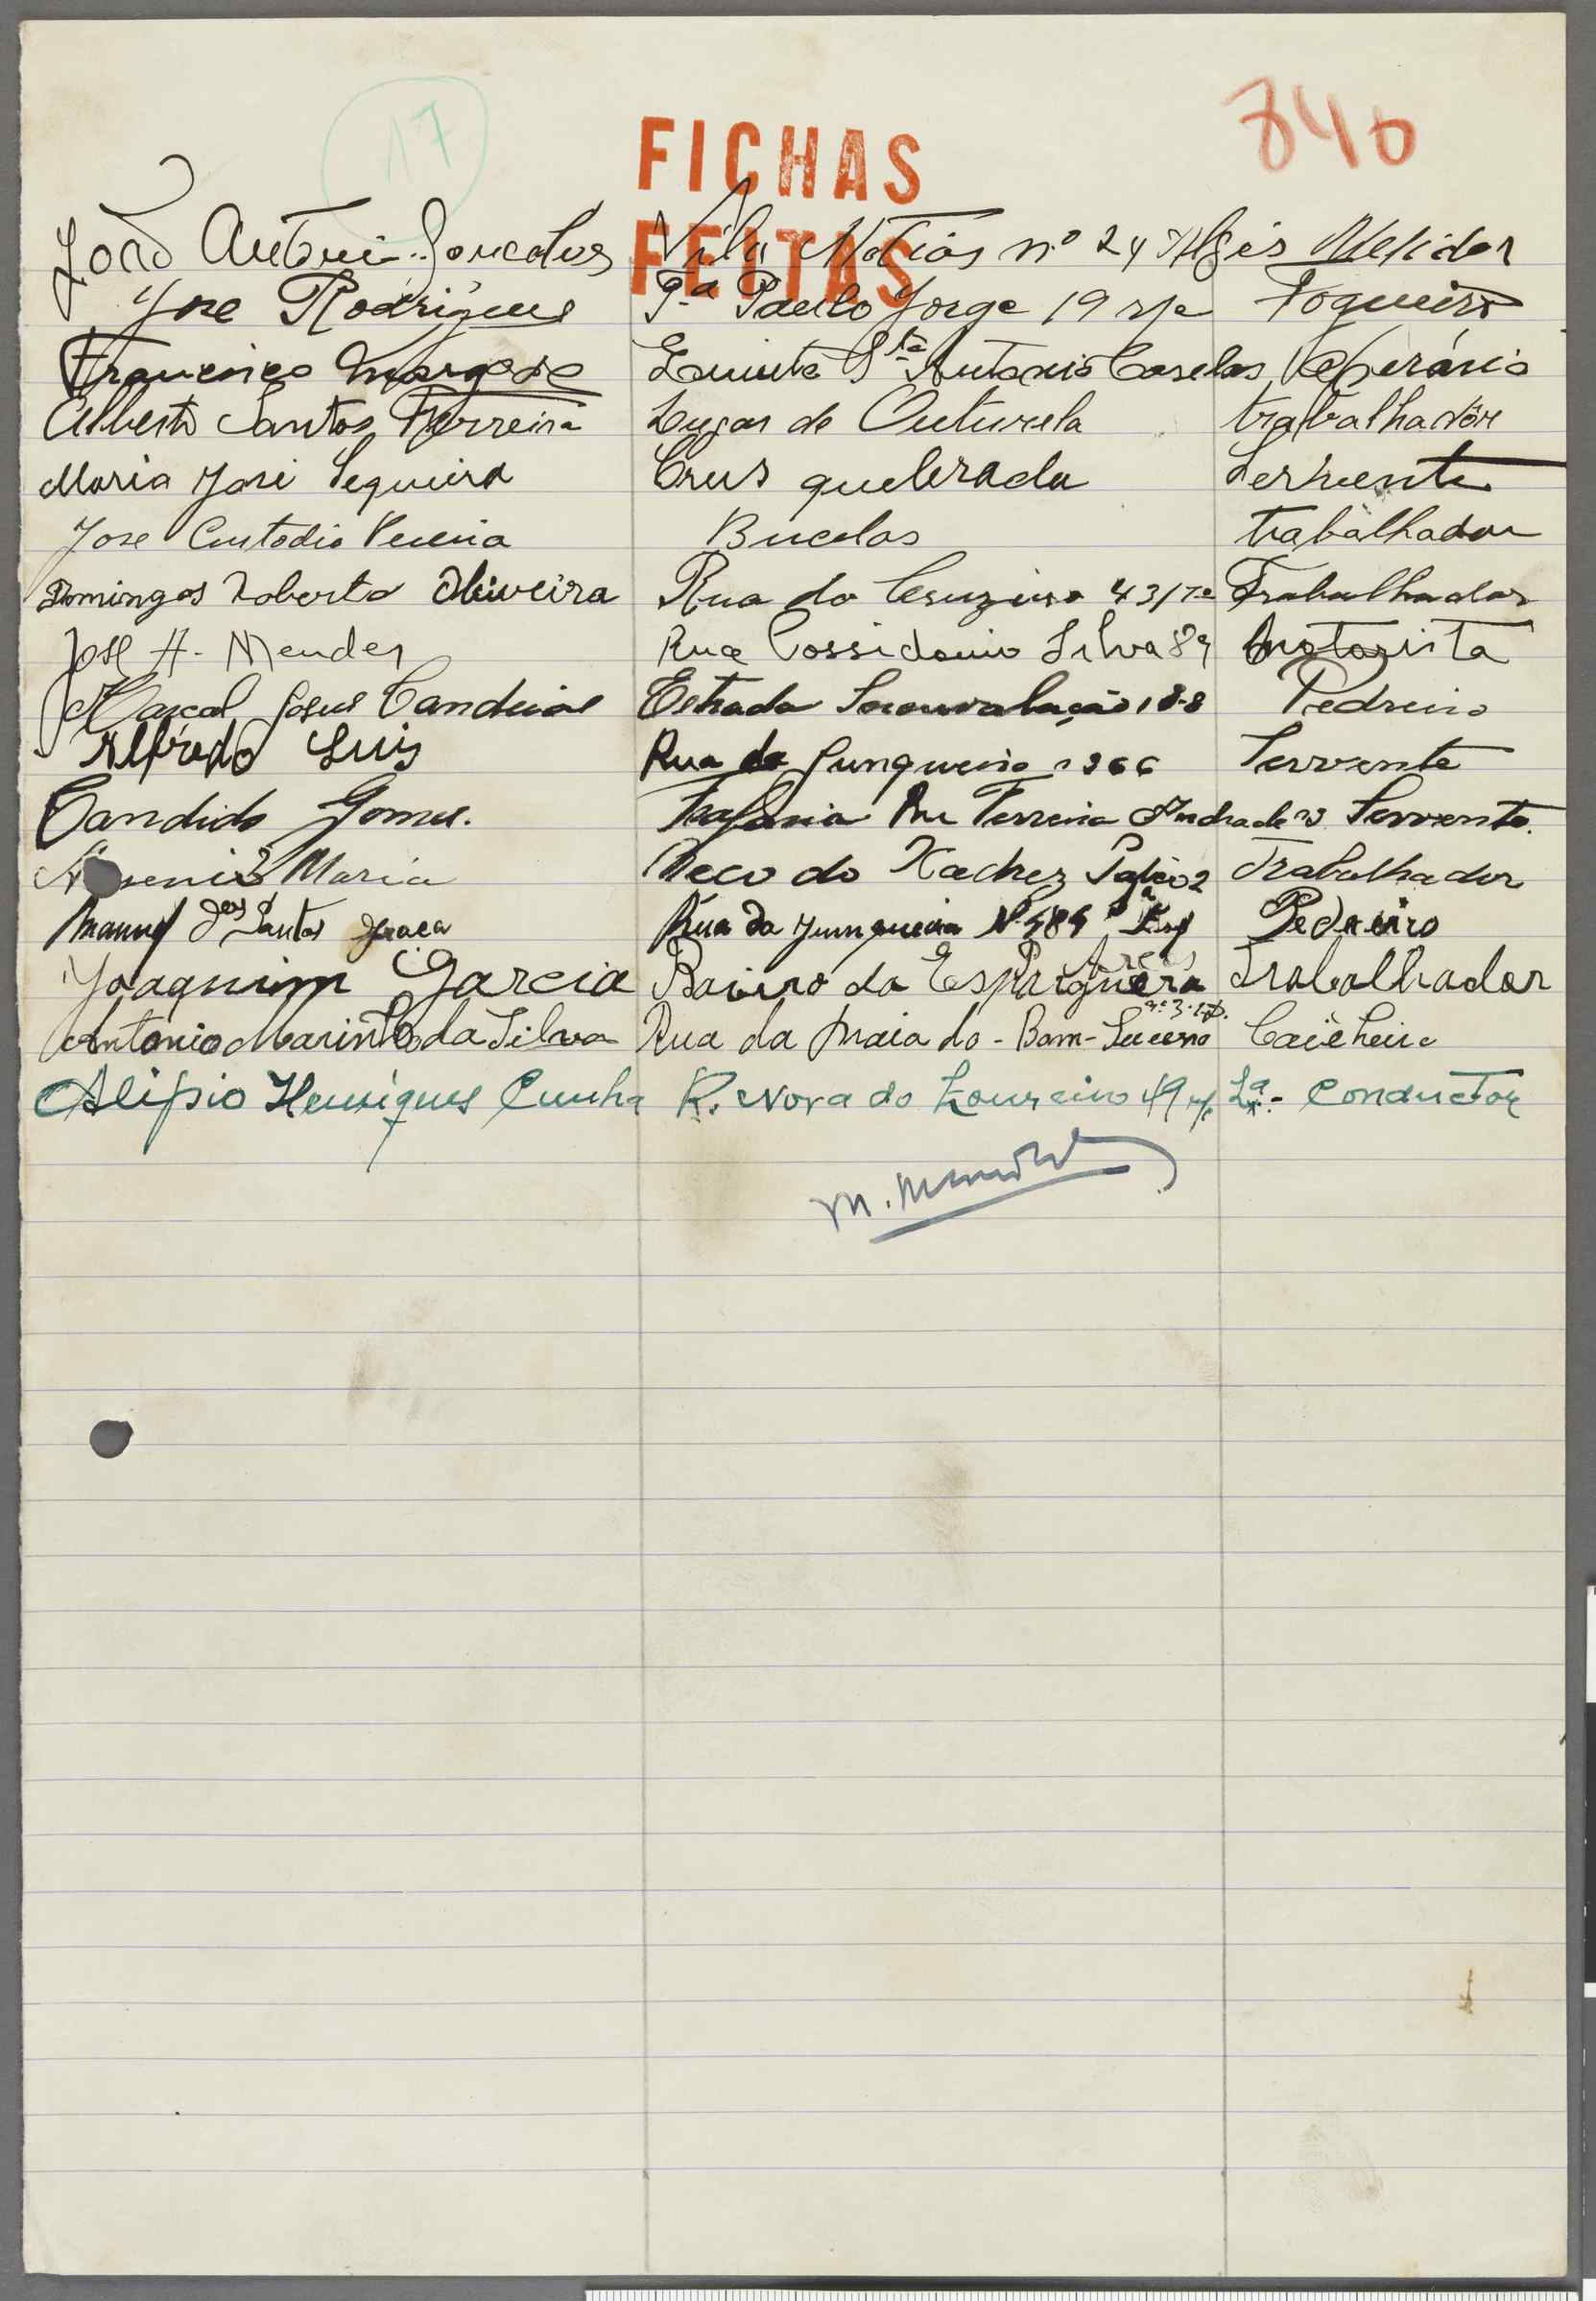 17
840
FICHAS
FEITAS
João Antonio Goncalves Vila Matias nº 24 Algés Medidor
Jose Rodrigues Tª Paulo Jorge 19 r/c Fogueiro
Francisco Quinta Stº Antonio Caselas Operário
Alberto Santos Ferreira Lugar de Outurela trabalhadôr
Maria José Sequeira Crus quebrada Servente
Jose Custodio Pereira Bucelas trabalhador
Domingos Roberto Oliveira Rua do Cruzeiro 43 Trabalhador
José A. Mendes Rua Possidonio Silva 89 Motorista
Marcal Jesus Candeias Estrada 188 Pedreiro
Alfredo Luis Rua da Junqueira 366 Servente
Candido Gomes. Trafaria Rua Ferreira Andrade Servente.
Maria Beco do Xadrez Patio 2 Trabalhador
Manuel dos Santos Graça Rua da Junqueira Nº Pedreiro
Joaquim Garcia Bairro da Trabalhador
Antonio Marinho da Silva Rua da Praia do - Bom - Sucesso
Alipio Henriques Cunha R. Nova do Loureiro 49 r/c Conductor
M.